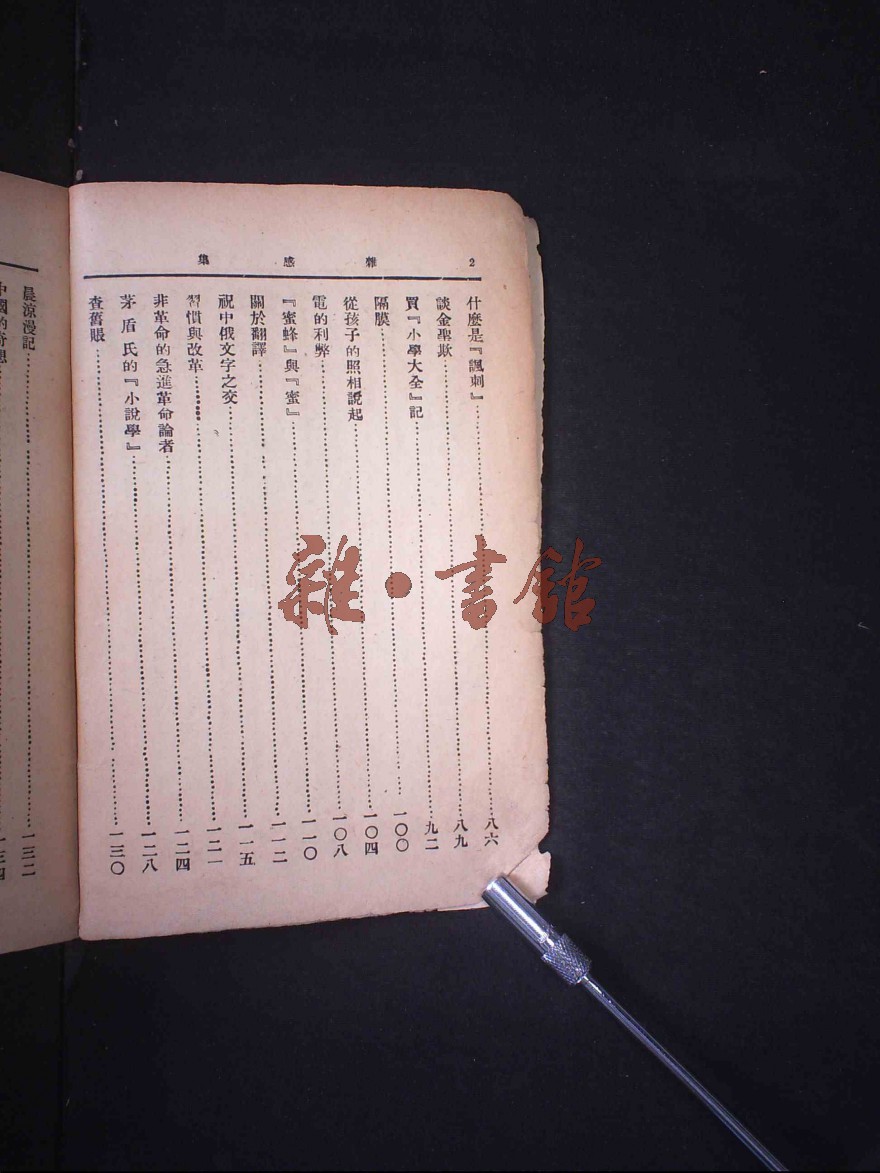 雜感集
2
什麼是『諷刺』……八六
談金聖歎……八九
買『小學大全』記……九二
隔膜……一〇〇
從孩子的照相說起……一〇四
電的利弊……一〇八
『蜜蜂』與『蜜』……一一〇
關於翻譯……一一二
祝中俄文字之交……一一五
習慣與改革……一二一
非革命的急進革命論者……一二四
茅盾氏的『小說學』……一二八
查舊賬……一三〇
晨涼漫記……一三二
中國的奇想……一三四
雜·書館